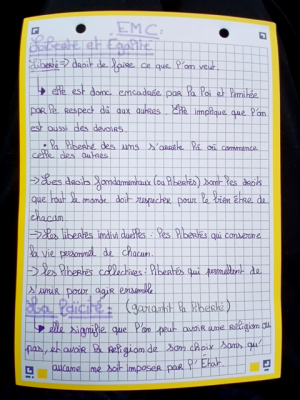 EMC:
Liberté et Égalité
Liberté => droit de faire ce que l'on veut.
↳ elle est donc encadrée par la loi et limitée
par le respect dû aux autres. Elle implique que l'on
est aussi des devoirs.
• la liberté des uns s'arrête là où commence
celle des autres
-> Les droits fondamentaux (ou libertés) sont les droits
que tout le monde doit respecter pour le bien être de
chacun
-> Les libertés individuelles: les libertés qui concerne
la vie personnel de chacun.
-> Les libertés collectives: libertés qui permettent de
s'unir pour agir ensemble
La laïcité: (garantit la liberté)
↳ elle signifie que l'on peut avoir une religion ou
pas, et avoir la religion de son choix sans qu'
aucune me soit imposer par l'État.